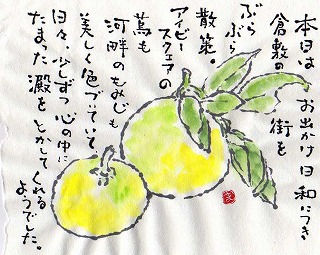 本日は お出かけ日和につき
倉敷の街を
ぶらぶら
散策。
アイビー
スクエアの
蔦も
河畔のもみじも
美しく色づいていて、
日々、少しずつ心の中に
たまった澱をとかしてくれる
ようでした。